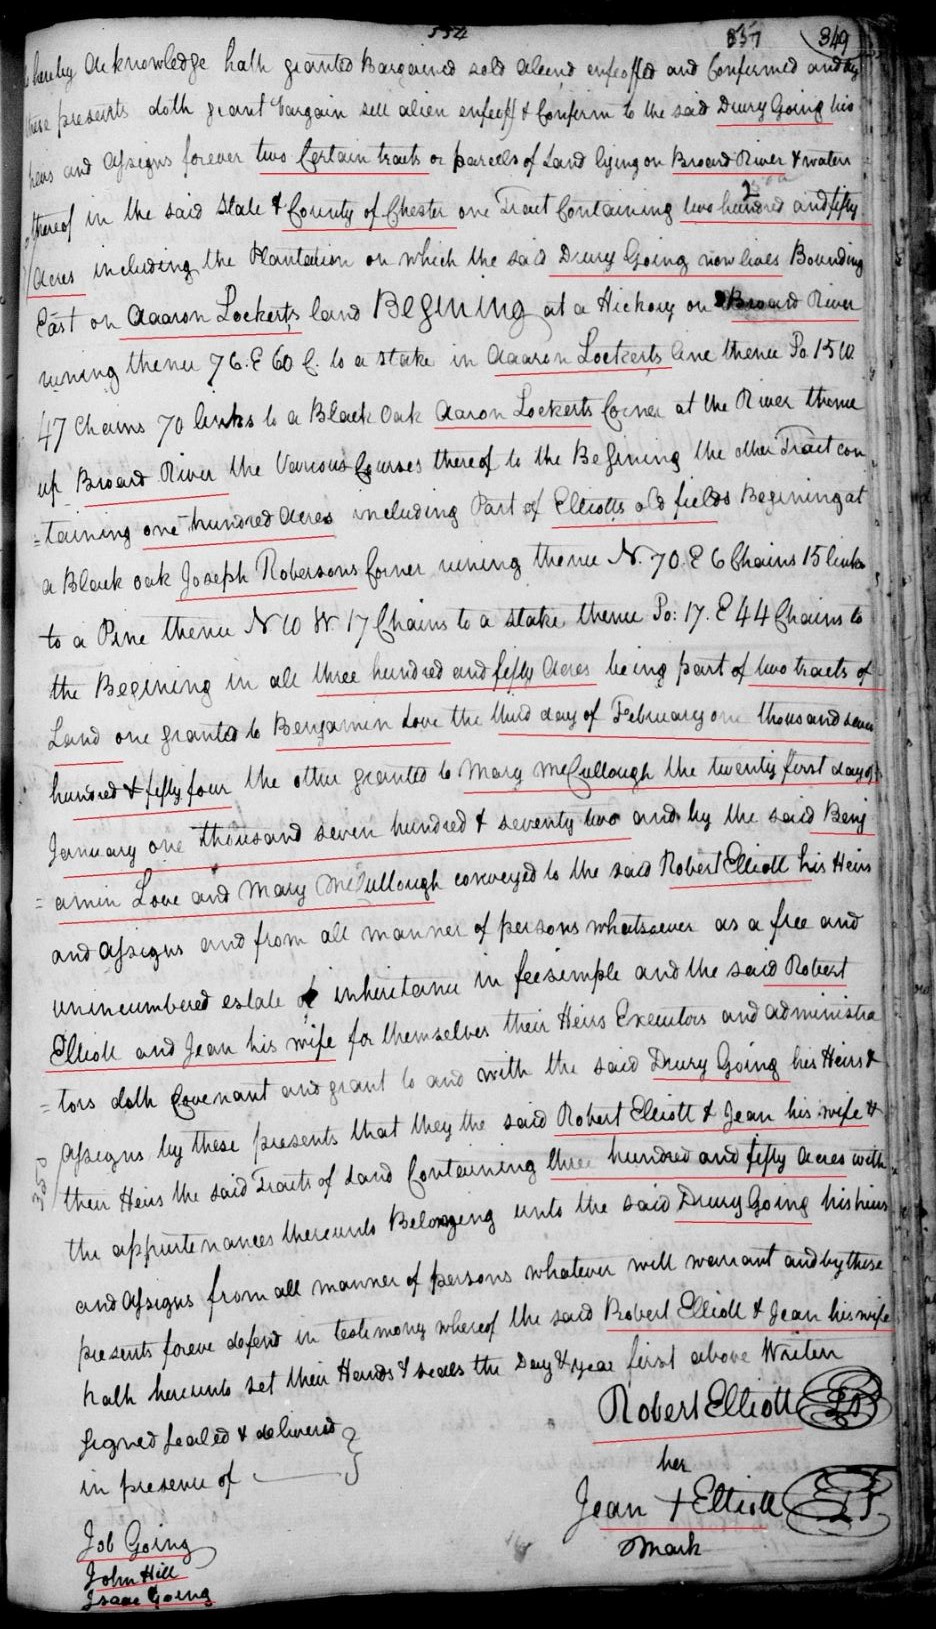 554
357 349
hereby acknowledge hath granted Bargained sold aliend enfeoffed and Confirmed and by
these presents doth grant bargain sell alien enfeoff & Confirm to the said Drury Going his
heirs and assigns forever two Certain tracts or parcels of Land lying on Broard River & waters
thereof in the said State & County of Chester one Tract Containing two hundred and fifty
Acres including the Plantation on which the said Drury Going now lives Bounding
East on Aaaron Lockerts land Begining at a Hickory on Broard River
runing thence 76. E 60 C. to a stake in Aaaron Lockerts line thence So. 15 W
47 Chains 70 links to a Black Oak Aaron Lockerts Corner at the River thence
up Broard River the Various Courses thereof to the Begining the other Tract con
=taining one hundred Acres including Part of Elliotts old fields Begining at
a Black oak Joseph Robersons Corner runing thence N. 70. E 6 Chains 15 links
to a Pine thence N 10 W. 17 Chains to a stake thence So: 17. E 44 Chains to
the Begining in all three hundred and fifty Acres being part of two tracts of
Land one granted to Benjamin Love the third day of February one thousand seven
hundred & fifty four the other granted to Mary McCullough the twenty first day of
January one thousand seven hundred & seventy two and by the said Benj
=amin Love and Mary McCullough conveyed to the said Robert Elliott his Heirs
and assigns and from all manner of persons whatsoever as a free and
unincumbered estate of inheritance in fee simple and the said Robert
Elliott and Jean his wife for themselves their Heirs Executors and administra
=tors doth Covenant and grant to and with the said Drury Going his Heirs &
assigns by these presents that they the said Robert Elliott & Jean his wife &
their Heirs the said Tracts of Land Containing three hundred and fifty Acres with
the appurtenances thereunto Belonging unto the said Drury Going his heirs
and assigns from all manner of persons whatever will warrant and by these
presents foreve defend in testimony whereof the said Robert Elliott & Jean his wife
hath hereunto set their Hands & seals the Day & year first above Writen
Robert Elliott LS
Signed sealed & delivered
in presence of
her
Jean + Elliott LS
mark
Job Going
John Hill
Isaac Going